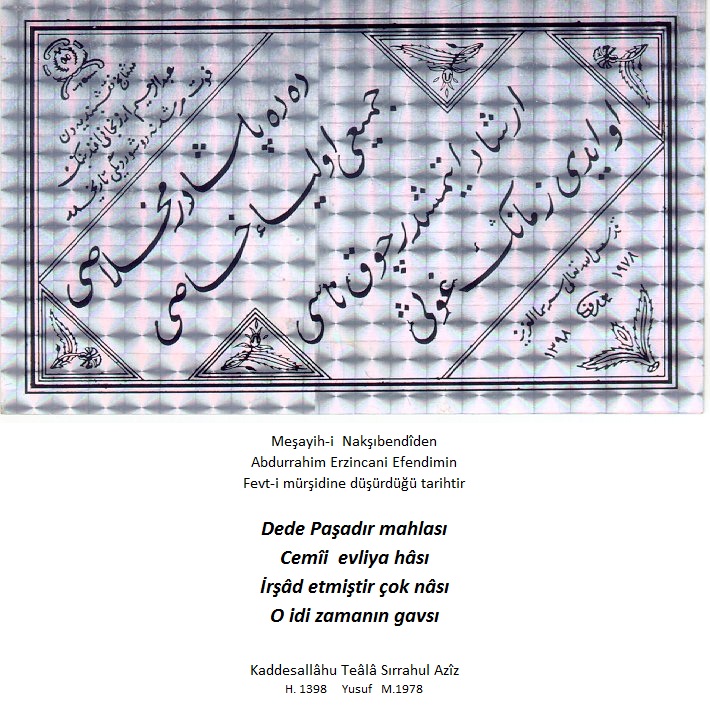 مشایخ نقشبندیه دن
عبدالرحیم ارزنجانی افندینك
فوت مرشدینه دوشوردیگی تاریخدر
ده ده پاشادر مخلاصی
جمیعی اولیاء خاصی
ارشاد ایتمشدر چوق ناسی
او ایدی زمانك غوثی
قدس الله تعالی سره العزیز
١٣٩٨ یوسف ١٩٧٨
Meşayih-i Nakşıbendîden
Abdurrahim Erzincani Efendimin
Fevt-i mürşidine düşürdüğü tarihtir
Dede Paşadır mahlası
Cemîi evliya hâsı
İrşâd etmiştir çok nâsı
O idi zamanın gavsı
Kaddesallâhu Teâlâ Sırrahul Azîz
H. 1398 Yusuf M.1978